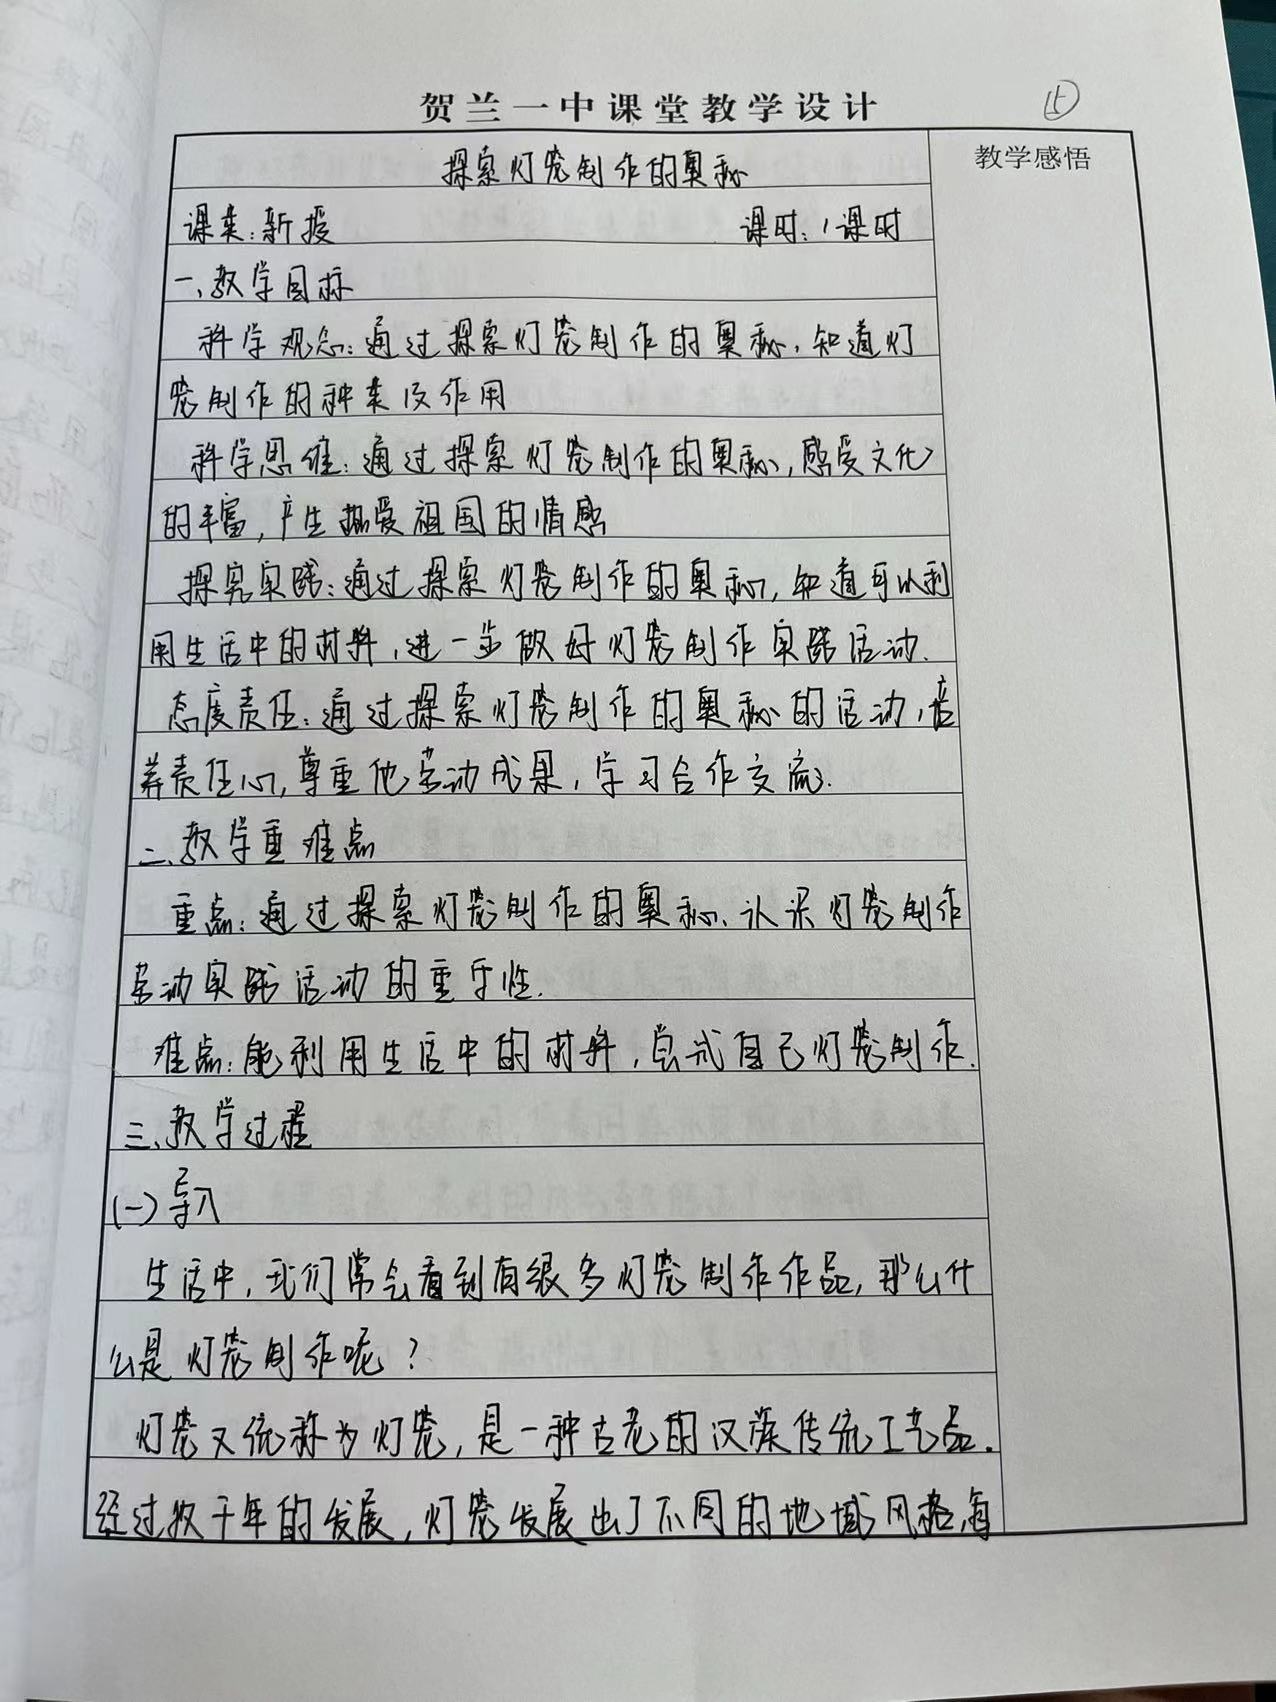 贺兰一中课堂教学设计
探索灯笼制作的奥秘
教学感悟
课类:新授 课时:1课时
一、教学目标
科学观念:通过探索灯笼制作的奥秘,知道灯
笼制作的种类及作用
科学思维:通过探索灯笼制作的奥秘,感受文化
的丰富,产生热爱祖国的情感
探究实践:通过探索灯笼制作的奥秘,知道可以利
用生活中的材料,进一步做好灯笼制作实践活动.
态度责任:通过探索灯笼制作的奥秘的活动,培
养责任心,尊重他劳动成果,学习合作交流.
二、教学重难点
重点:通过探索灯笼制作的奥秘、认识灯笼制作
劳动实践活动的重要性.
难点:能利用生活中的材料,尝试自己灯笼制作.
三、教学过程
(一)导入
生活中,我们常会看到有很多灯笼制作作品,那么什
么是灯笼制作呢?
灯笼又统称为灯笼,是一种古老的汉族传统工艺品.
经过数千年的发展,灯笼发展出了不同的地域风格,有